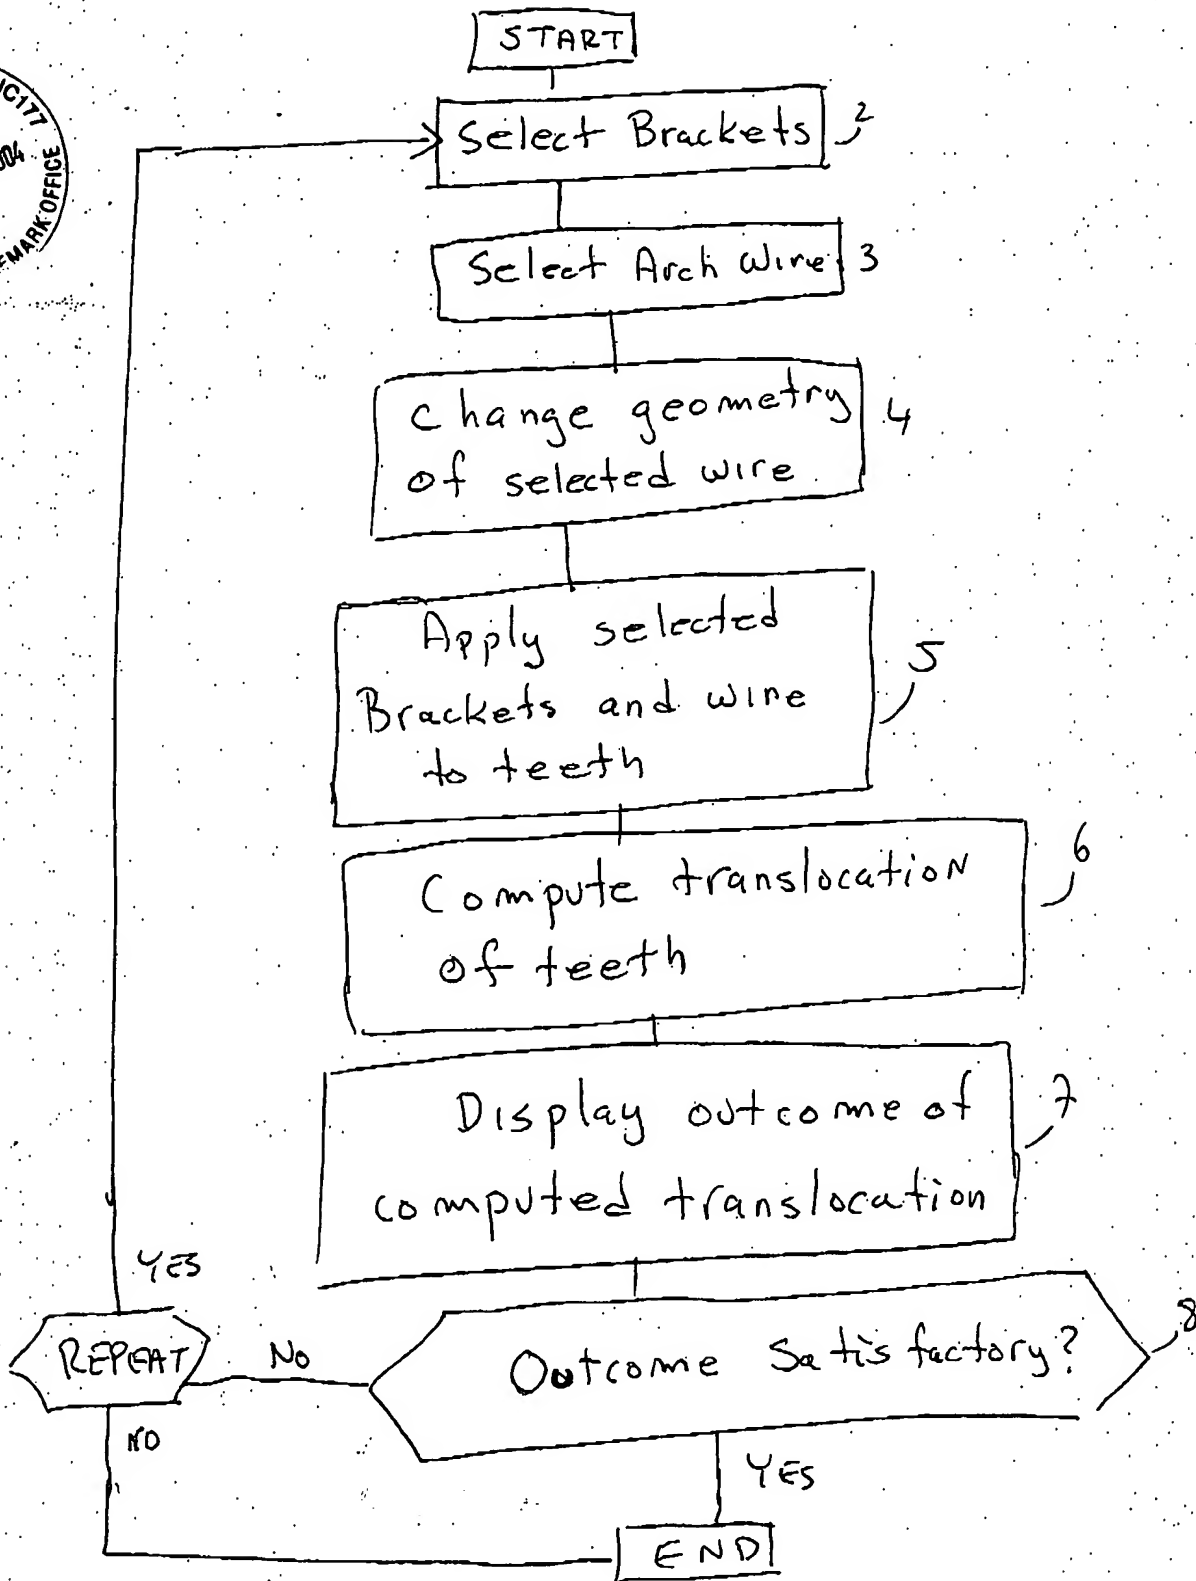 START
Select Brackets 2
Select Arch Wire 3
Change geometry 4
of selected wire
Apply selected
Brackets and wire 5
to teeth
Compute translocation 6
of teeth
Display outcome of 7
computed translocation
YES
REPEAT
No
Outcome Satisfactory? 8
NO
YES
END
IC177
EMARK OFFICE